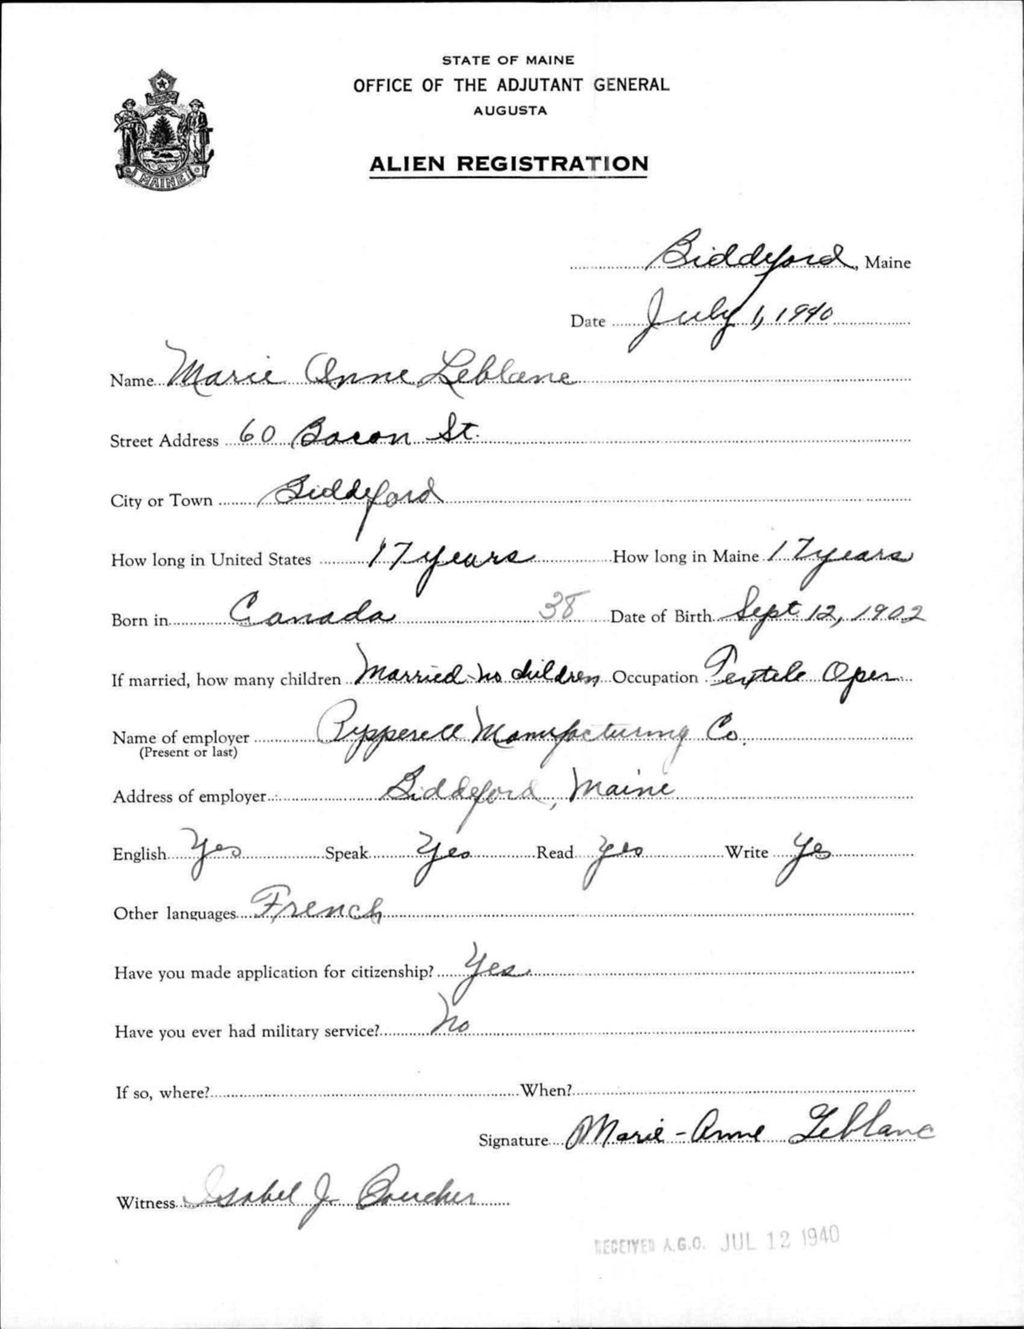 STATE OF MAINE
OFFICE OF THE ADJUTANT GENERAL
AUGUSTA
ALIEN REGISTRATION
MAINE
Biddeford, Maine
Date July 1, 1940
Name Marie Anne Leblanc
Street Address 60 Bacon St.
City or Town Biddeford
How long in United States 17 years How long in Maine 17 years
Born in Canada 38 Date of Birth Sept. 12, 1902
If married, how many children Married-no children Occupation Textile Oper
Name of employer Pepperell Manufacturing Co.
(Present or last)
Address of employer Biddeford, Maine
English Yes Speak Yes Read Yes Write Yes
Other languages French
Have you made application for citizenship? Yes
Have you ever had military service? No
If so, where? When?
Signature Marie-Anne Leblanc
Witness Isabel J. Boucher
RECEIVED A.G.O. JUL 12 1940